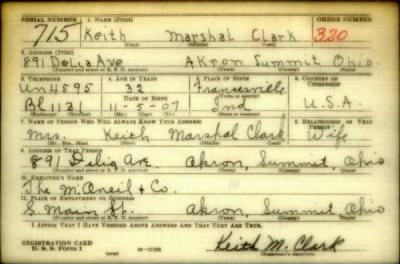 SERIAL NUMBER 1. NAME (Print) ORDER NUMBER
715 Keith Marshal Clark 320
(First) (Middle) (Last)
2. ADDRESS (Print)
891 Delia Ave Akron Summit Ohio
(Number and street or R. F. D. number) (Town) (County) (State)
3. TELEPHONE 4. AGE IN YEARS 5. PLACE OF BIRTH 6. COUNTRY OF CITIZENSHIP
Un 4595 32 Francesville
DATE OF BIRTH
Bl 1121 11-5-07 Ind U.S.A.
7. NAME OF PERSON WHO WILL ALWAYS KNOW YOUR ADDRESS 8. RELATIONSHIP OF THAT PERSON
Mrs. Keith Marshal Clark Wife
(Mr., Mrs., Miss) (First) (Middle) (Last)
9. ADDRESS OF THAT PERSON
891 Delia Ave. Akron, Summit, Ohio
(Number and street or R. F. D. number) (Town) (County) (State)
10. EMPLOYER'S NAME
The M. Oneil & Co.
11. PLACE OF EMPLOYMENT OR BUSINESS
S. Main St. Akron, Summit Ohio
(Number and street or R. F. D. number) (Town) (County) (State)
I AFFIRM THAT I HAVE VERIFIED ABOVE ANSWERS AND THAT THEY ARE TRUE.
REGISTRATION CARD
D. S. S. Form 1 16-17105 Keith M. Clark
(Registrant's signature)